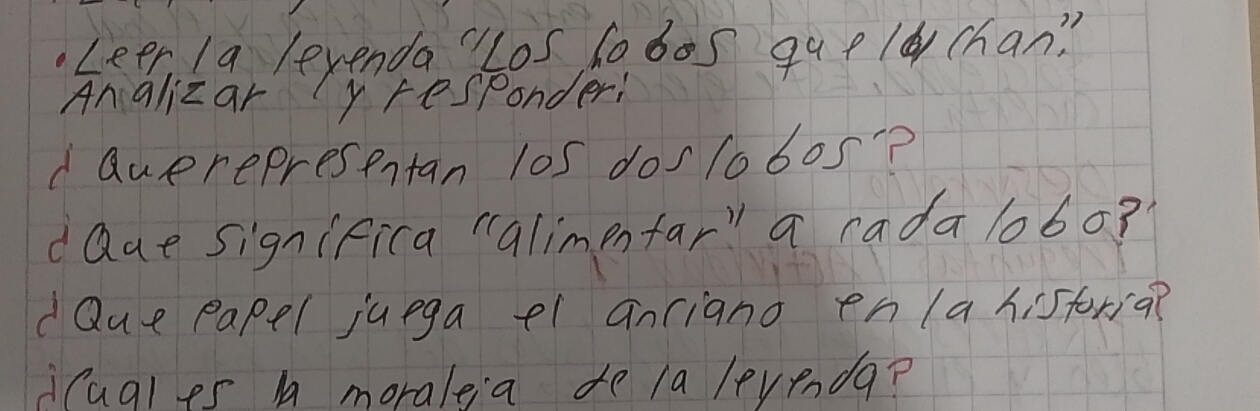 •Leer la leyenda "Los lobos que luchan".
Analizar y responder:
¿Que representan los dos lobos?
¿Que significa "alimentar" a cada lobo?
¿Que papel juega el anciano en la historia?
¿Cual es la moraleja de la leyenda?